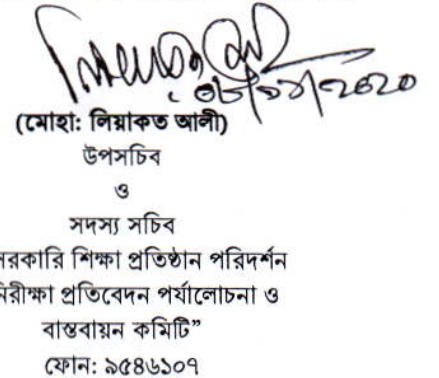 (মোহা: লিয়াকত আলী)
উপসচিব
ও
সদস্য সচিব
সরকারি শিক্ষা প্রতিষ্ঠান পরিদর্শন
নিরীক্ষা প্রতিবেদন পর্যালোচনা ও
বাস্তবায়ন কমিটি”
ফোন: ৯৫৪৬১০৭